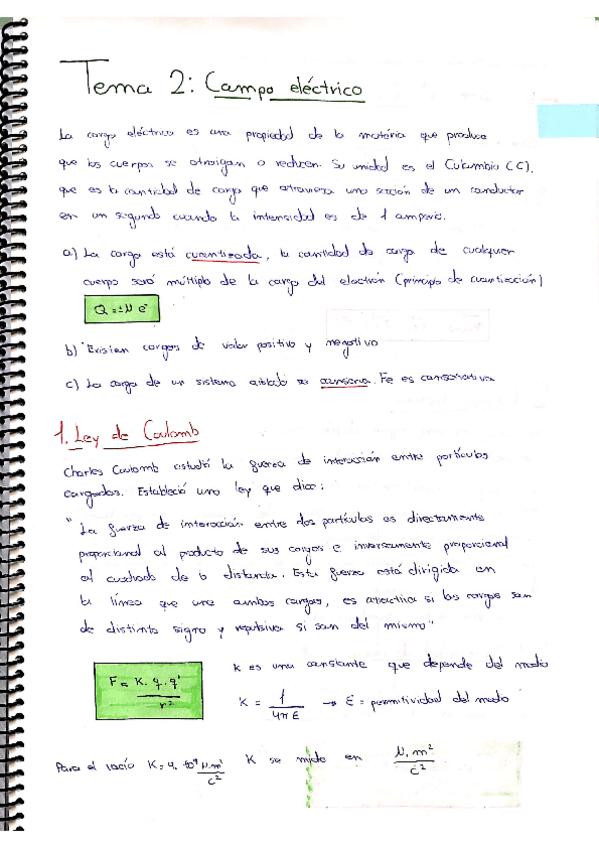 Tema 2: Campo eléctrico
La carga eléctrica es una propiedad de la materia que produce
que los cuerpos se atraigan o . Su unidad es el Culombio (C),
que es la cantidad de carga que atraviesa una sección de un conductor
en un segundo cuando la intensidad es de 1 amperio.
a) La carga está cuantizada, la cantidad de carga de cualquier
cuerpo será múltiplo de la carga del electrón (principio de cuantización)
Q = ±N e⁻
b) Existen cargas de valor positivo y negativo
c) La carga de un sistema aislado se conserva. Fe es conservativa
1. Ley de Coulomb
Charles Coulomb estudió la fuerza de interacción entre partículas
cargadas. Estableció una ley que dice:
"La fuerza de interacción entre dos partículas es directamente
proporcional al producto de sus cargas e inversamente proporcional
al cuadrado de la distancia. Esta fuerza está dirigida en
la línea que une ambas cargas, es atractiva si las cargas son
de distinto signo y repulsiva si son del mismo"
F = K. q. q' / r²
K es una constante que depende del medio
K = 1 / 4πε → ε = permitividad del medio
Para el vacío K = 9. 10⁹ N.m² / C² K se mide en N. m² / C²